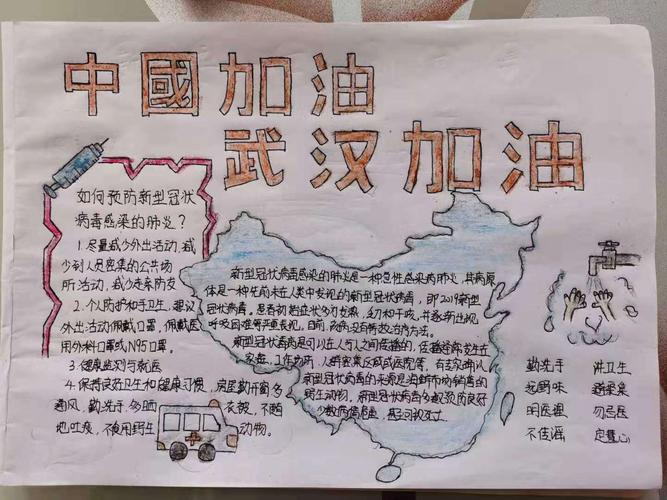 中國加油
武汉加油
如何预防新型冠状
病毒感染的肺炎？
1.尽量减少外出活动,减
少到人员密集的公共场
所活动,减少走亲访友
2.个人防护和手卫生,建议
外出活动佩戴口罩,佩戴医
用外科口罩或N95口罩
3.健康监测与就医
4.保持良好卫生和健康习惯,居民勤开窗多
通风,勤洗手,多晒衣被,不随
地吐痰,不食用野生动物.
新型冠状病毒感染的肺炎是一种急性感染病肺炎,其病原
体是一种先前未在人类中发现的新型冠状病毒,即2019新型
冠状病毒,患者初始症状多为发热,乏力和干咳,并逐渐出现
呼吸困难等严重表现,目前,疾病没有特效治疗方法。
新型冠状病毒是可以在人与人之间传播的,传播途径发生在
家庭,工作场所,人群密集区域或医院等,
新型冠状病毒的来源是海鲜市场销售的
野生动物,新型冠状病毒多数预后良好
少数病情危重,甚至可致死亡.
勤洗手 讲卫生
远野味 避聚集
明医理 勿忌医
不佳谣 定慧心